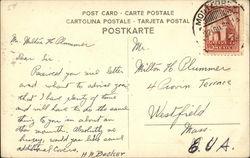 POST CARD - CARTE POSTALE
CARTOLINA POSTALE - TARJETA POSTAL
POSTKARTE
Mr. Milton H. Plummer
Dear Sir
Received your letter
and want to advise you
that I have plenty of time
and will have to do the same
thing to you in about an
other month. Absolutely no
hurry; would you like some
additional Covers.
H.W. Becker
Mr.
Milton H. Plummer
4 Crown Terrace
Westfield
Mass
E U A.